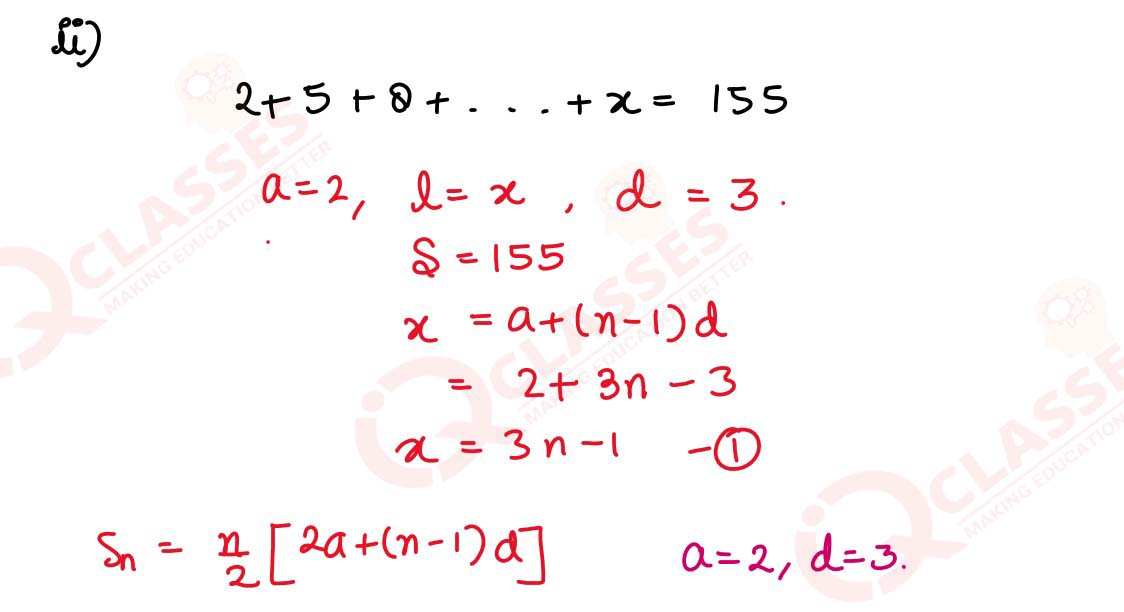 ii)
2 + 5 + 8 + . . . + x = 155
a = 2, l = x , d = 3 .
S = 155
x = a + (n - 1) d
= 2 + 3n - 3
x = 3n - 1 - ①
Sn = n/2 [2a + (n - 1) d] a = 2, d = 3.
IQ CLASSES
MAKING EDUCATION BETTER
IQ CLASSES
MAKING EDUCATION BETTER
IQ CLASSES
MAKING EDUCATION